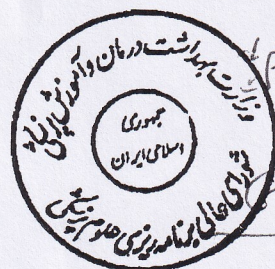 وزارت بهداشت درمان و آموزش پزشکی
جمهوری
اسلامی ایران
شورای عالی برنامه ریزی علوم پزشکی